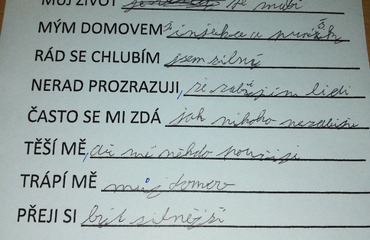 MŮJ ŽIVOT je mobi
MÝM DOMOVEM injekce a
RÁD SE CHLUBÍM jsem silný
NERAD PROZRAZUJI, že zabíjím lidi
ČASTO SE MI ZDÁ jak nikoho nezabiju
TĚŠÍ MĚ, že mě někdo použije
TRÁPÍ MĚ můj domov
PŘEJI SI být silnější